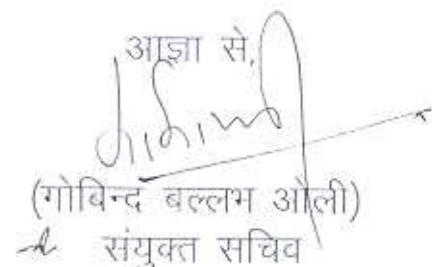 आज्ञा से,
(गोबिन्द बल्लभ ओली)
संयुक्त सचिव